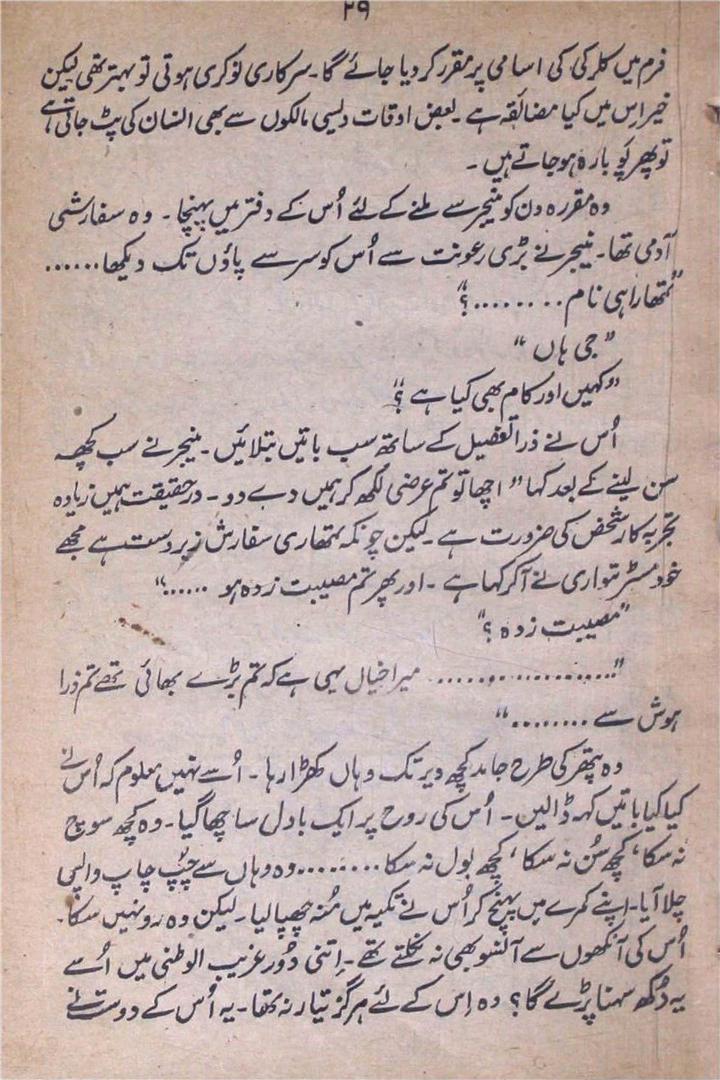 ۲۹
فرم میں کلرکی کی اسامی پر مقرر کر دیا جائے گا۔ سرکاری نوکری ہوتی تو بہتر تھی لیکن
خیر اِس میں کیا مضائقہ ہے۔ بعض اوقات دلیسی مالکوں سے بھی انسان کی پٹ جاتی ہے
تو پھر پَو بارہ ہو جاتے ہیں۔
وہ مقررہ دن کو منیجر سے ملنے کے لئے اُس کے دفتر میں پہنچا۔ وہ سفارشی
آدمی تھا۔ منیجر نے بڑی رعونت سے اُس کو سر سے پاؤں تک دیکھا......
”تمھارا ہی نام ........؟“
”جی ہاں“
”کہیں اور کام بھی کیا ہے؟“
اُس نے ذرا تفصیل کے ساتھ سب باتیں بتلائیں۔ منیجر نے سب کچھ
سن لینے کے بعد کہا ”اچھا تو تم عرضی لکھ کر ہمیں دے دو۔ در حقیقت ہمیں زیادہ
تجربہ کار شخص کی ضرورت ہے۔ لیکن چونکہ تمھاری سفارش زبردست ہے مجھے
خود مسٹر تواری نے آکر کہا ہے۔ اور پھر تم مصیبت زدہ ہو ......“
”مصیبت زدہ؟“
”.................. میرا خیال یہی ہے کہ تم بڑے بھائی تھے تم ذرا
ہوش سے ........“
وہ پتھر کی طرح جامد کچھ دیر تک وہاں کھڑا رہا۔ اُسے نہیں معلوم کہ اُس نے
کیا کیا باتیں کہہ ڈالیں۔ اُس کی روح پر ایک بادل سا چھا گیا۔ وہ کچھ سوچ
نہ سکا، کچھ سُن نہ سکا، کچھ بول نہ سکا ........ وہ وہاں سے چُپ چاپ واپس
چلا آیا۔ اپنے کمرے میں پہنچ کر اُس نے تکیہ میں مُنہ چھپا لیا۔ لیکن وہ رو نہیں سکا۔
اُس کی آنکھوں سے آنسو بھی نہ نکلتے تھے۔ اِتنی دُور غریب الوطنی میں اُسے
یہ دُکھ سہنا پڑے گا؟ وہ اِس کے لئے ہرگز تیار نہ تھا۔ یہ اُس کے دوست نے